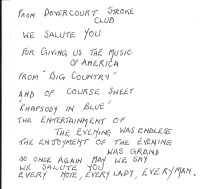 FROM DOVERCOURT STROKE
CLUB
WE SALUTE YOU
FOR GIVING US THE MUSIC
OF AMERICA
FROM "BIG COUNTRY"
AND OF COURSE SWEET
"RHAPSODY IN BLUE"
THE ENTERTAINMENT OF
THE EVENING WAS ENDLESS
THE ENJOYMENT OF THE EVENING
WAS GRAND
SO ONCE AGAIN MAY WE SAY
WE SALUTE YOU
EVERY NOTE, EVERY LADY, EVERY MAN.